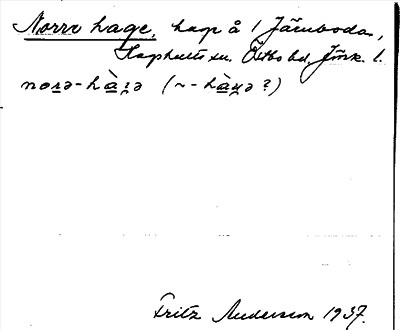 Norre hage, hage å 1 Järnboda,
Slaphults sn. Östbo hd. Jönk. l.
norə-hàgə (~-hàgə?)
Fritz Anderson 1937.